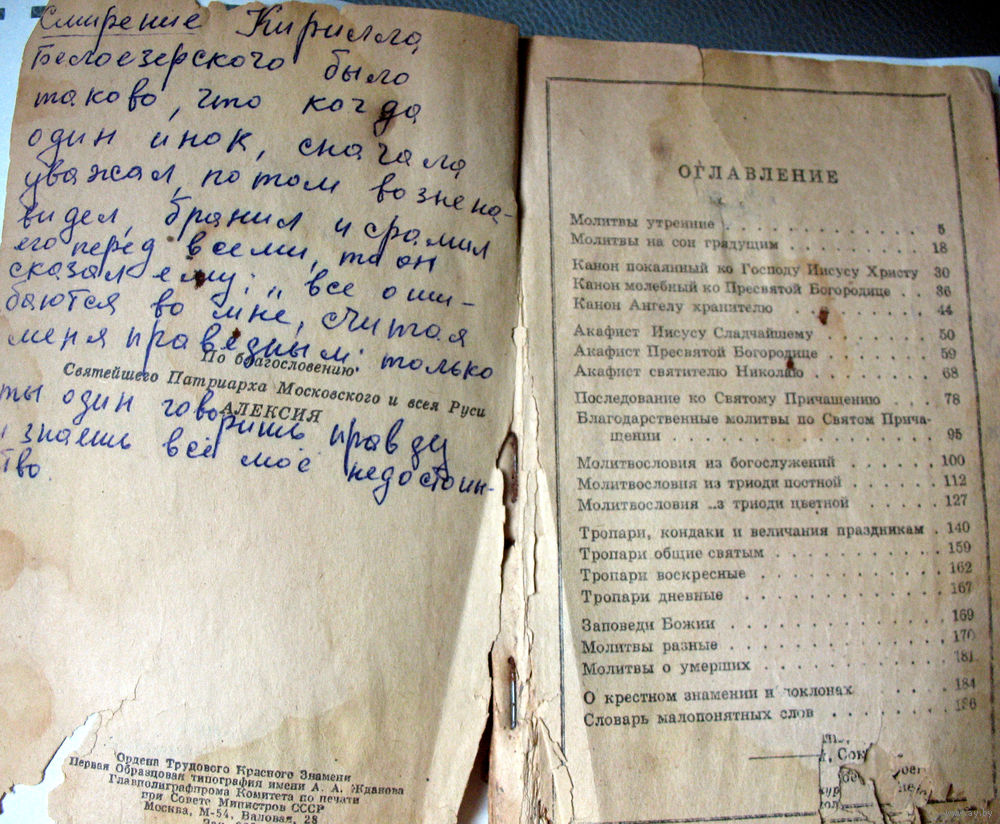 Смирение Кирилла
Белоезерского было
таково, что когда
один инок, сначала
уважал, потом возне на-
видел, бранил и срамил
его перед всеми, то он
сказал ему: „ все оши-
баются во мне, считая
меня праведным: только
ты один говоришь правду
знаешь всё моё недостоин-
тво.
По благословению
Святейшего Патриарха Московского и всея Руси
АЛЕКСИЯ
Ордена Трудового Красного Знамени
Первая Образцовая типография имени А. А. Жданова
Главполиграфпрома Комитета по печати
при Совете Министров СССР
Москва, М-54, Валовая, 28
ОГЛАВЛЕНИЕ
Молитвы утренние . . . . . . . . . . . 5
Молитвы на сон грядущим . . . . . . . . 18
Канон покаянный ко Господу Иисусу Христу 30
Канон молебный ко Пресвятой Богородице . . 36
Канон Ангелу хранителю . . . . . . . . 44
Акафист Иисусу Сладчайшему . . . . . . 50
Акафист Пресвятой Богородице . . . . . . 59
Акафист святителю Николаю . . . . . . . 68
Последование ко Святому Причащению . . . 78
Благодарственные молитвы по Святом Прича-
щении . . . . . . . . . . . . . 95
Молитвословия из богослужений . . . . . 100
Молитвословия из триоди постной . . . . . 112
Молитвословия из триоди цветной . . . . . 127
Тропари, кондаки и величания праздникам . 140
Тропари общие святым . . . . . . . . . 159
Тропари воскресные . . . . . . . . . . 162
Тропари дневные . . . . . . . . . . . 167
Заповеди Божии . . . . . . . . . . . 169
Молитвы разные . . . . . . . . . . . 170
Молитвы о умерших . . . . . . . . . . 181
О крестном знамении и поклонах . . . . . 184
Словарь малопонятных слов . . . . . . . 186